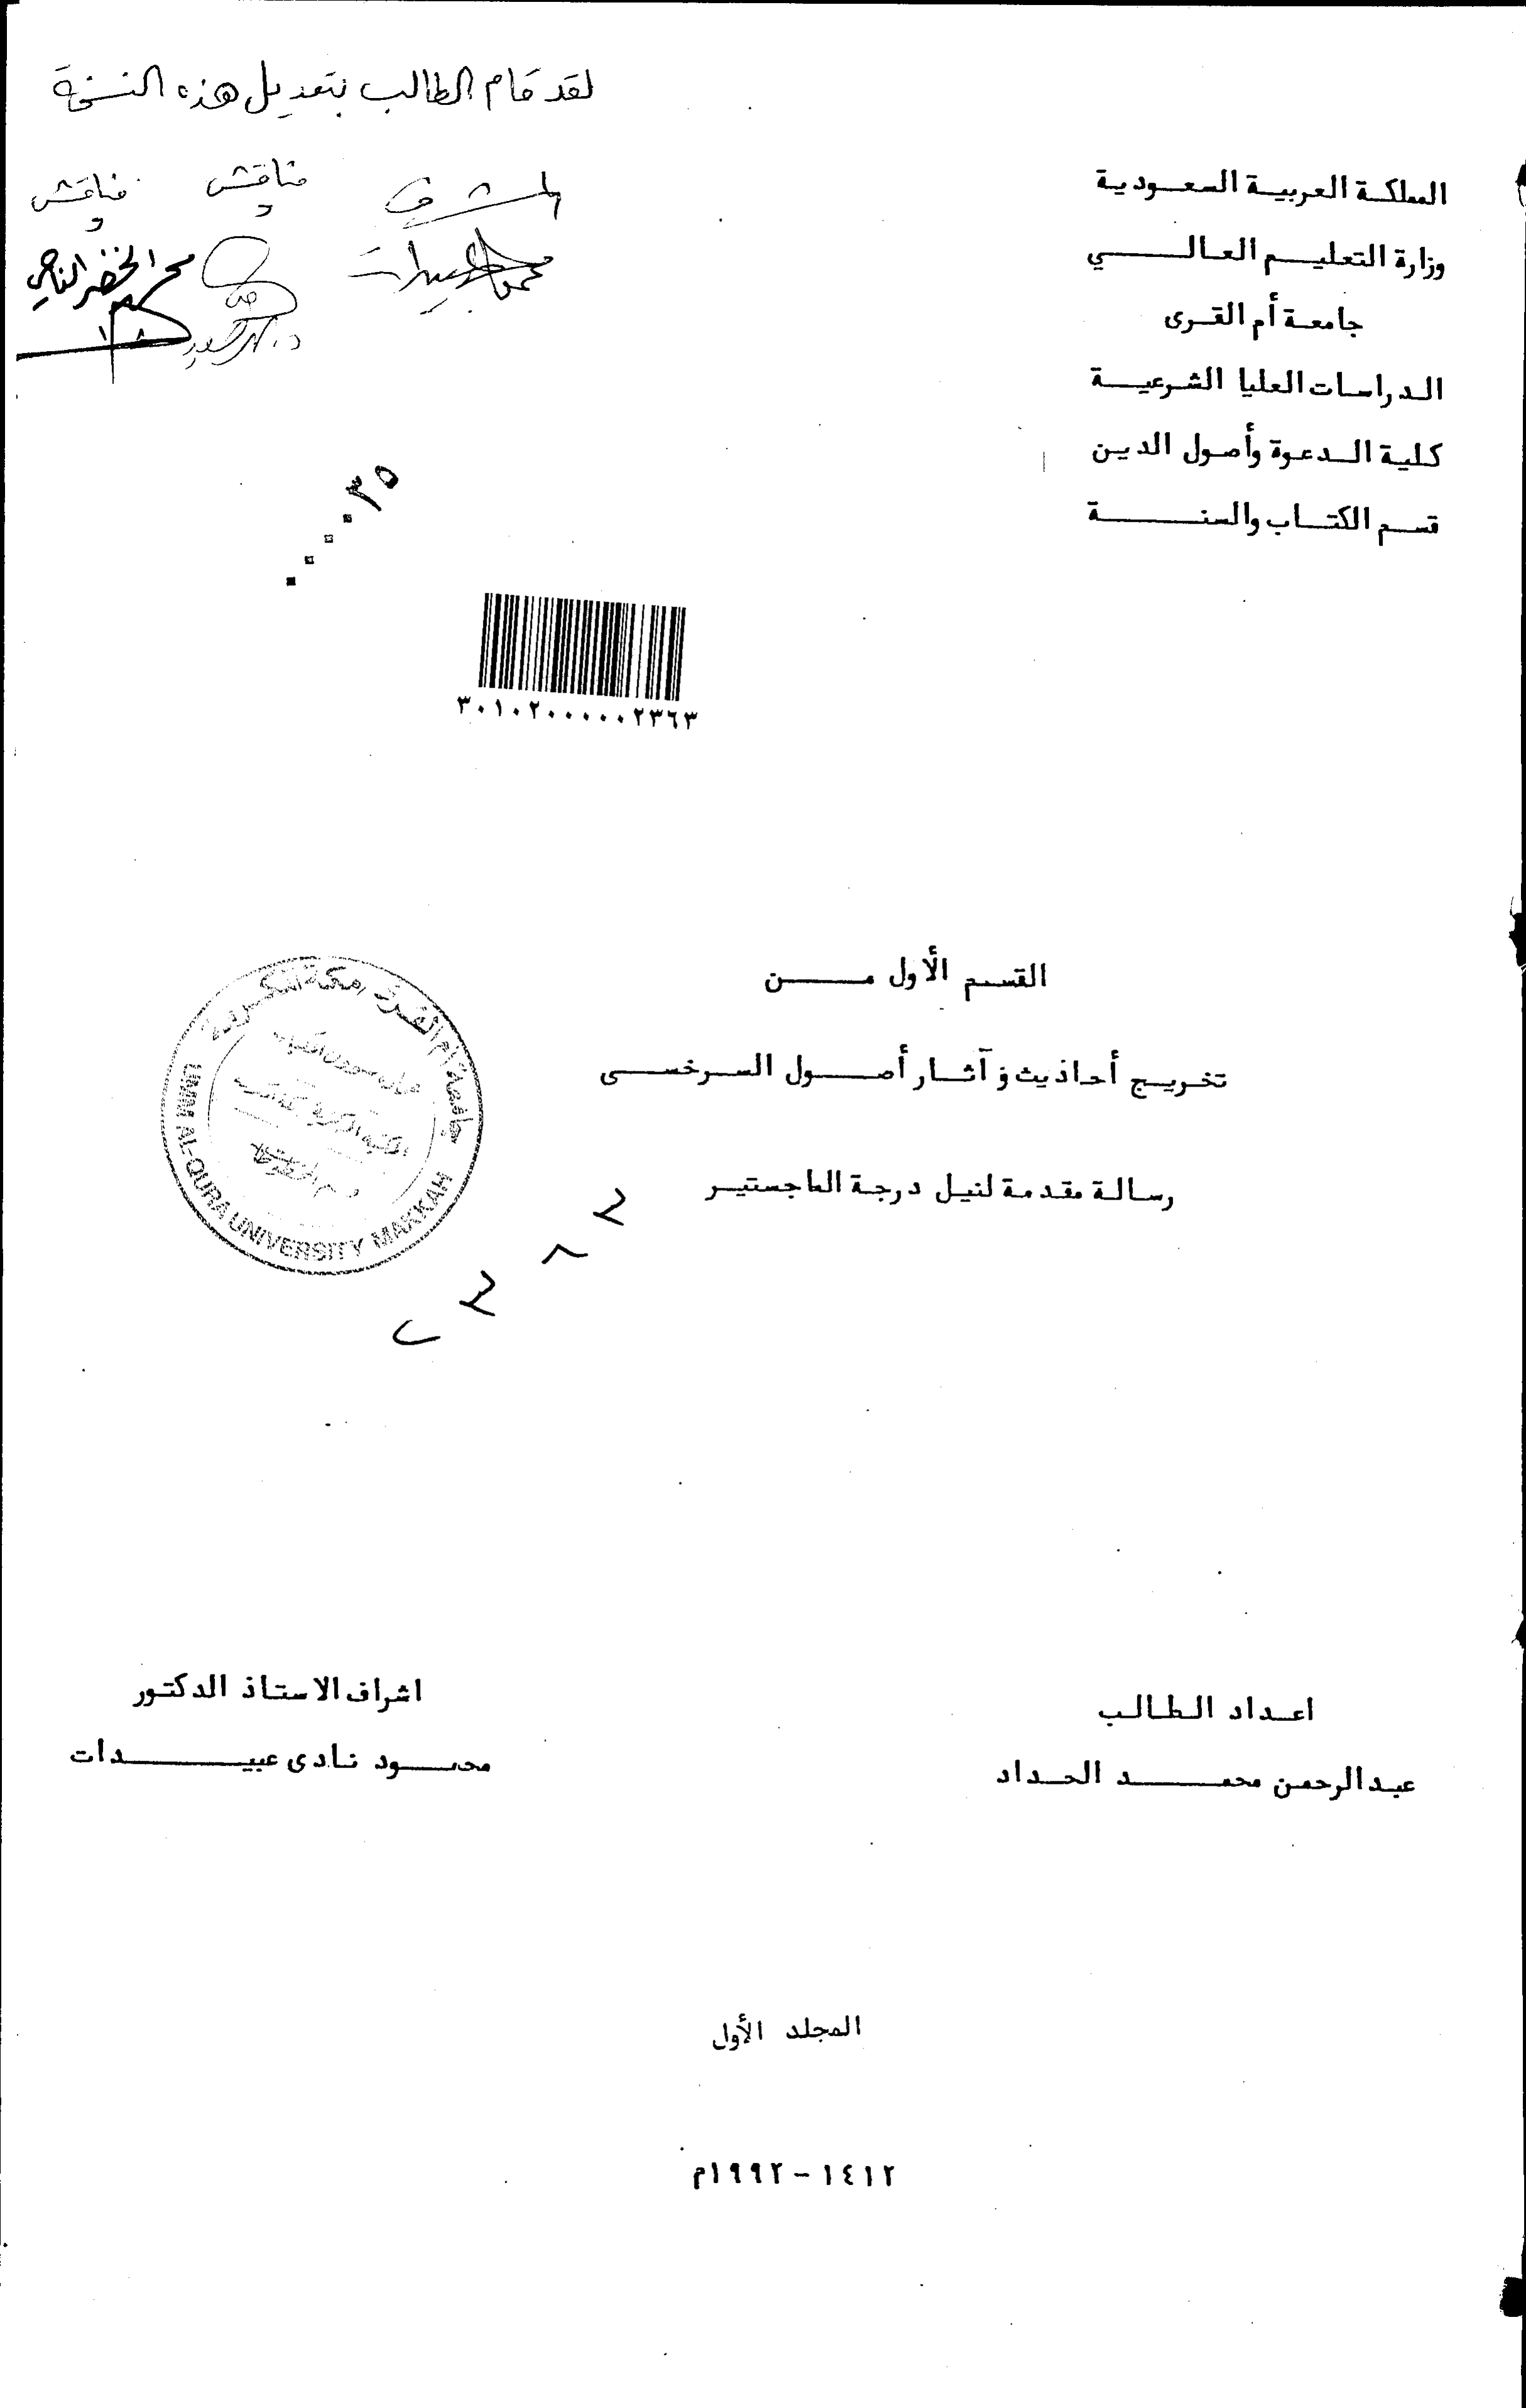 لقد قام الطالب بتعديل هذه النسخة
المشرف
مناقش
مناقش
محمود عبيدات
محمد الخضر الناجي
المملكة العربية السعودية
وزارة التعليم العالي
جامعة أم القرى
الدراسات العليا الشرعية
كلية الدعوة وأصول الدين
قسم الكتاب والسنة
٣٠١٠٢٠٠٠٠٠٢٣٦٣
القسم الأول من
تخريج أحاذيث و آثار أصول السرخسى
رسالة مقدمة لنيل درجة الماجستير
جامعة أم القرى مكة المكرمة
UMM AL-QURA UNIVERSITY MAKKAH
اعداد الطالب
عبدالرحمن محمد الحداد
اشراف الاستاذ الدكتور
محمود نادى عبيدات
المجلد الأول
١٤١٢ - ١٩٩٢م